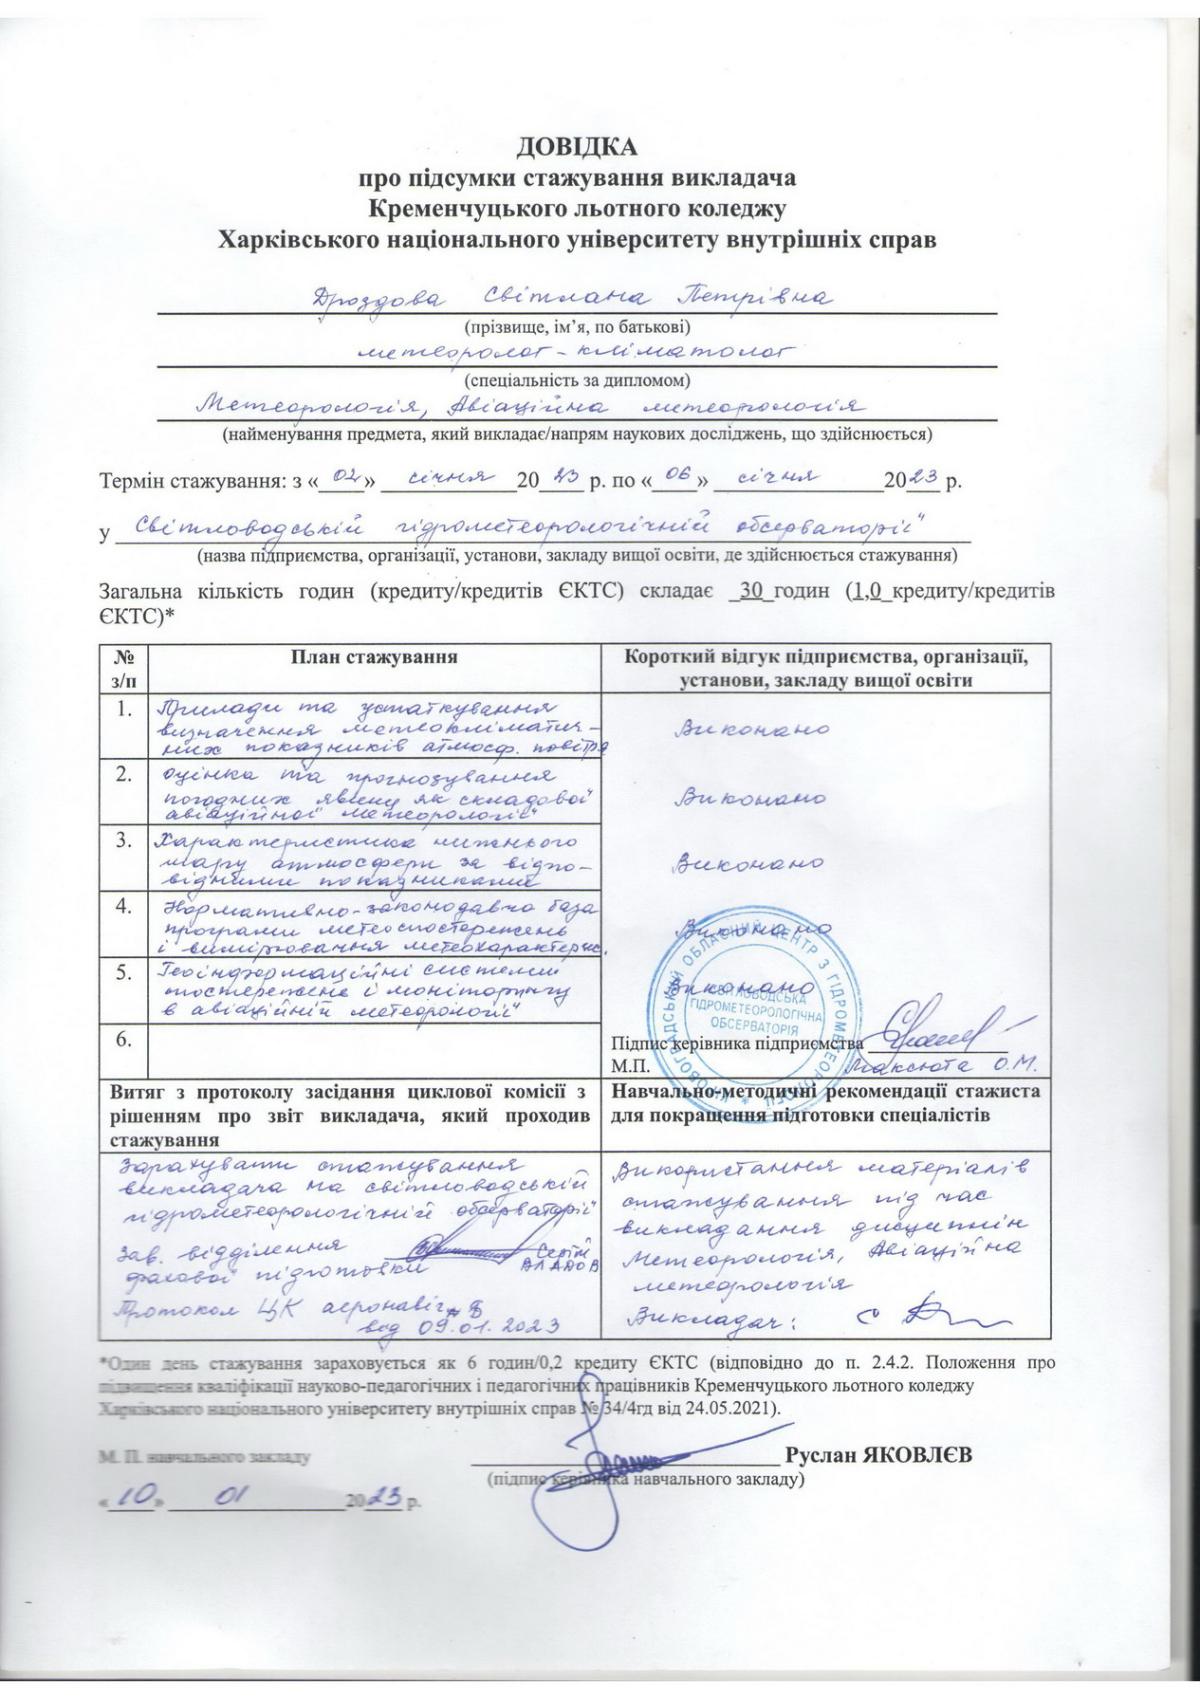 ДОВІДКА
про підсумки стажування викладача
Кременчуцького льотного коледжу
Харківського національного університету внутрішніх справ
Дроздова Світлана Петрівна
(прізвище, ім’я, по батькові)
метеоролог-кліматолог
(спеціальність за дипломом)
Метеорологія, Авіаційна метеорологія
(найменування предмета, який викладає/напрям наукових досліджень, що здійснюється)
Термін стажування: з «02» січня 2023 р. по «06» січня 2023 р.
у Світловодській гідрометеорологічній обсерваторії"
(назва підприємства, організації, установи, закладу вищої освіти, де здійснюється стажування)
Загальна кількість годин (кредиту/кредитів ЄКТС) складає _30_годин (1,0_кредиту/кредитів
ЄКТС)*
№ з/п
План стажування
Короткий відгук підприємства, організації,
установи, закладу вищої освіти
1. Прилади та устаткування
визначення метеокліматич-
них показників атмосф. повітря
Виконано
2. оцінка та прогнозування
погодних явищ як складової
авіаційної метеорології"
Виконано
3. Характеристика нижнього
шару атмосфери за відпо-
відними показниками
Виконано
4. Нормативно-законодавча база
програми метеоспостережень
і вимірювання метеохарактерис.
Виконано
5. Геоінформаційні системи
і моніторингу
в авіаційній метеорології"
Виконано
6.
КІРОВОГРАДСЬКИЙ ОБЛАСНИЙ ЦЕНТР З ГІДРОМЕТЕОРОЛОГІЇ
СВІТЛОВОДСЬКА
ГІДРОМЕТЕОРОЛОГІЧНА
ОБСЕРВАТОРІЯ
Підпис керівника підприємства
М.П. Максюта О.М.
Витяг з протоколу засідання циклової комісії з
рішенням про звіт викладача, який проходив
стажування
Навчально-методичні рекомендації стажиста
для покращення підготовки спеціалістів
Зарахувати стажування
викладача на світловодській
гідрометеорологічній обсерваторії"
Зав. відділення Сергій
фахової підготовки ВЛАДОВ
Протокол ЦК аеронавіг.
від 09.01.2023
Використання матеріалів
стажування під час
викладання дисциплін
Метеорологія, Авіаційна
метеорологія
Викладач:
*Один день стажування зараховується як 6 годин/0,2 кредиту ЄКТС (відповідно до п. 2.4.2. Положення про
підвищення кваліфікації науково-педагогічних і педагогічних працівників Кременчуцького льотного коледжу
Харківського національного університету внутрішніх справ № 34/4гд від 24.05.2021).
М. П. навчального закладу
Руслан ЯКОВЛЄВ
(підпис керівника навчального закладу)
«10» 01 2023 р.